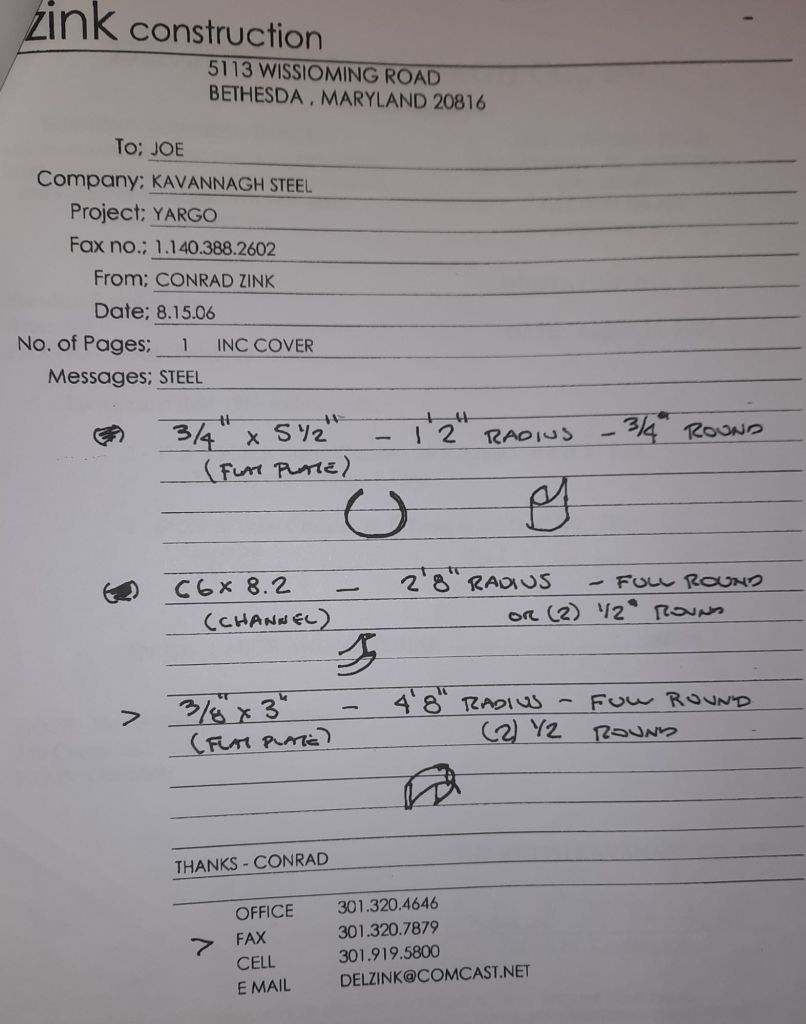 zink construction
5113 WISSIOMING ROAD
BETHESDA, MARYLAND 20816
To; JOE
Company; KAVANNAGH STEEL
Project; YARGO
Fax no.; 1.140.388.2602
From; CONRAD ZINK
Date; 8.15.06
No. of Pages; 1 INC COVER
Messages; STEEL
3/4" x 5 1/2" - 1'2" RADIUS - 3/4" ROUND
(FLAT PLATE)
C6 x 8.2 - 2'8" RADIUS - FULL ROUND
(CHANNEL) OR (2) 1/2" ROUND
> 3/8" x 3" - 4'8" RADIUS - FULL ROUND
(FLAT PLATE) (2) 1/2 ROUND
THANKS - CONRAD
OFFICE 301.320.4646
> FAX 301.320.7879
CELL 301.919.5800
E MAIL DELZINK@COMCAST.NET